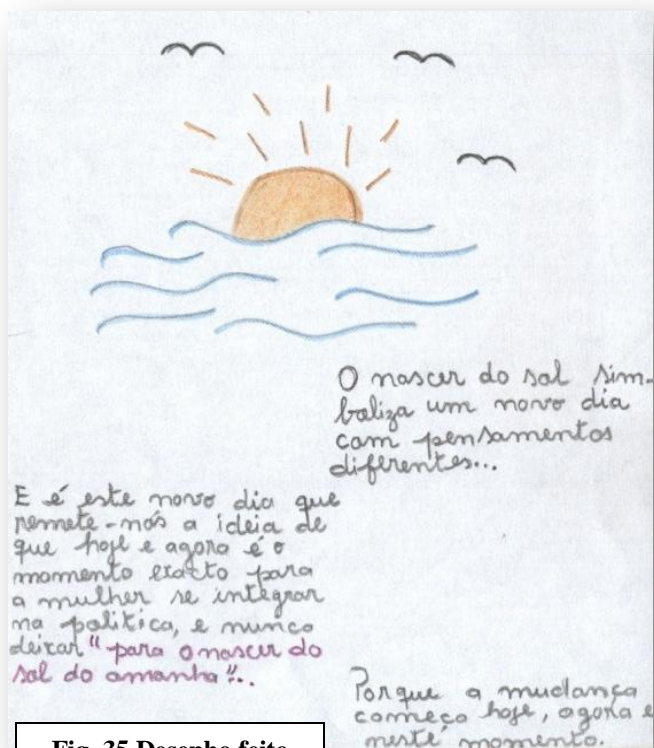 O nascer do sol sim-
baliza um novo dia
com pensamentos
diferentes...
E é este novo dia que
remete-nós a ideia de
que hoje e agora é o
momento exacto para
a mulher se integrar
na politica, e nunca
deixar "para o nascer do
sol do amanha"..
Porque a mudança
começo hoje, agora e
neste momento.
Fig. 35 Desenho feito